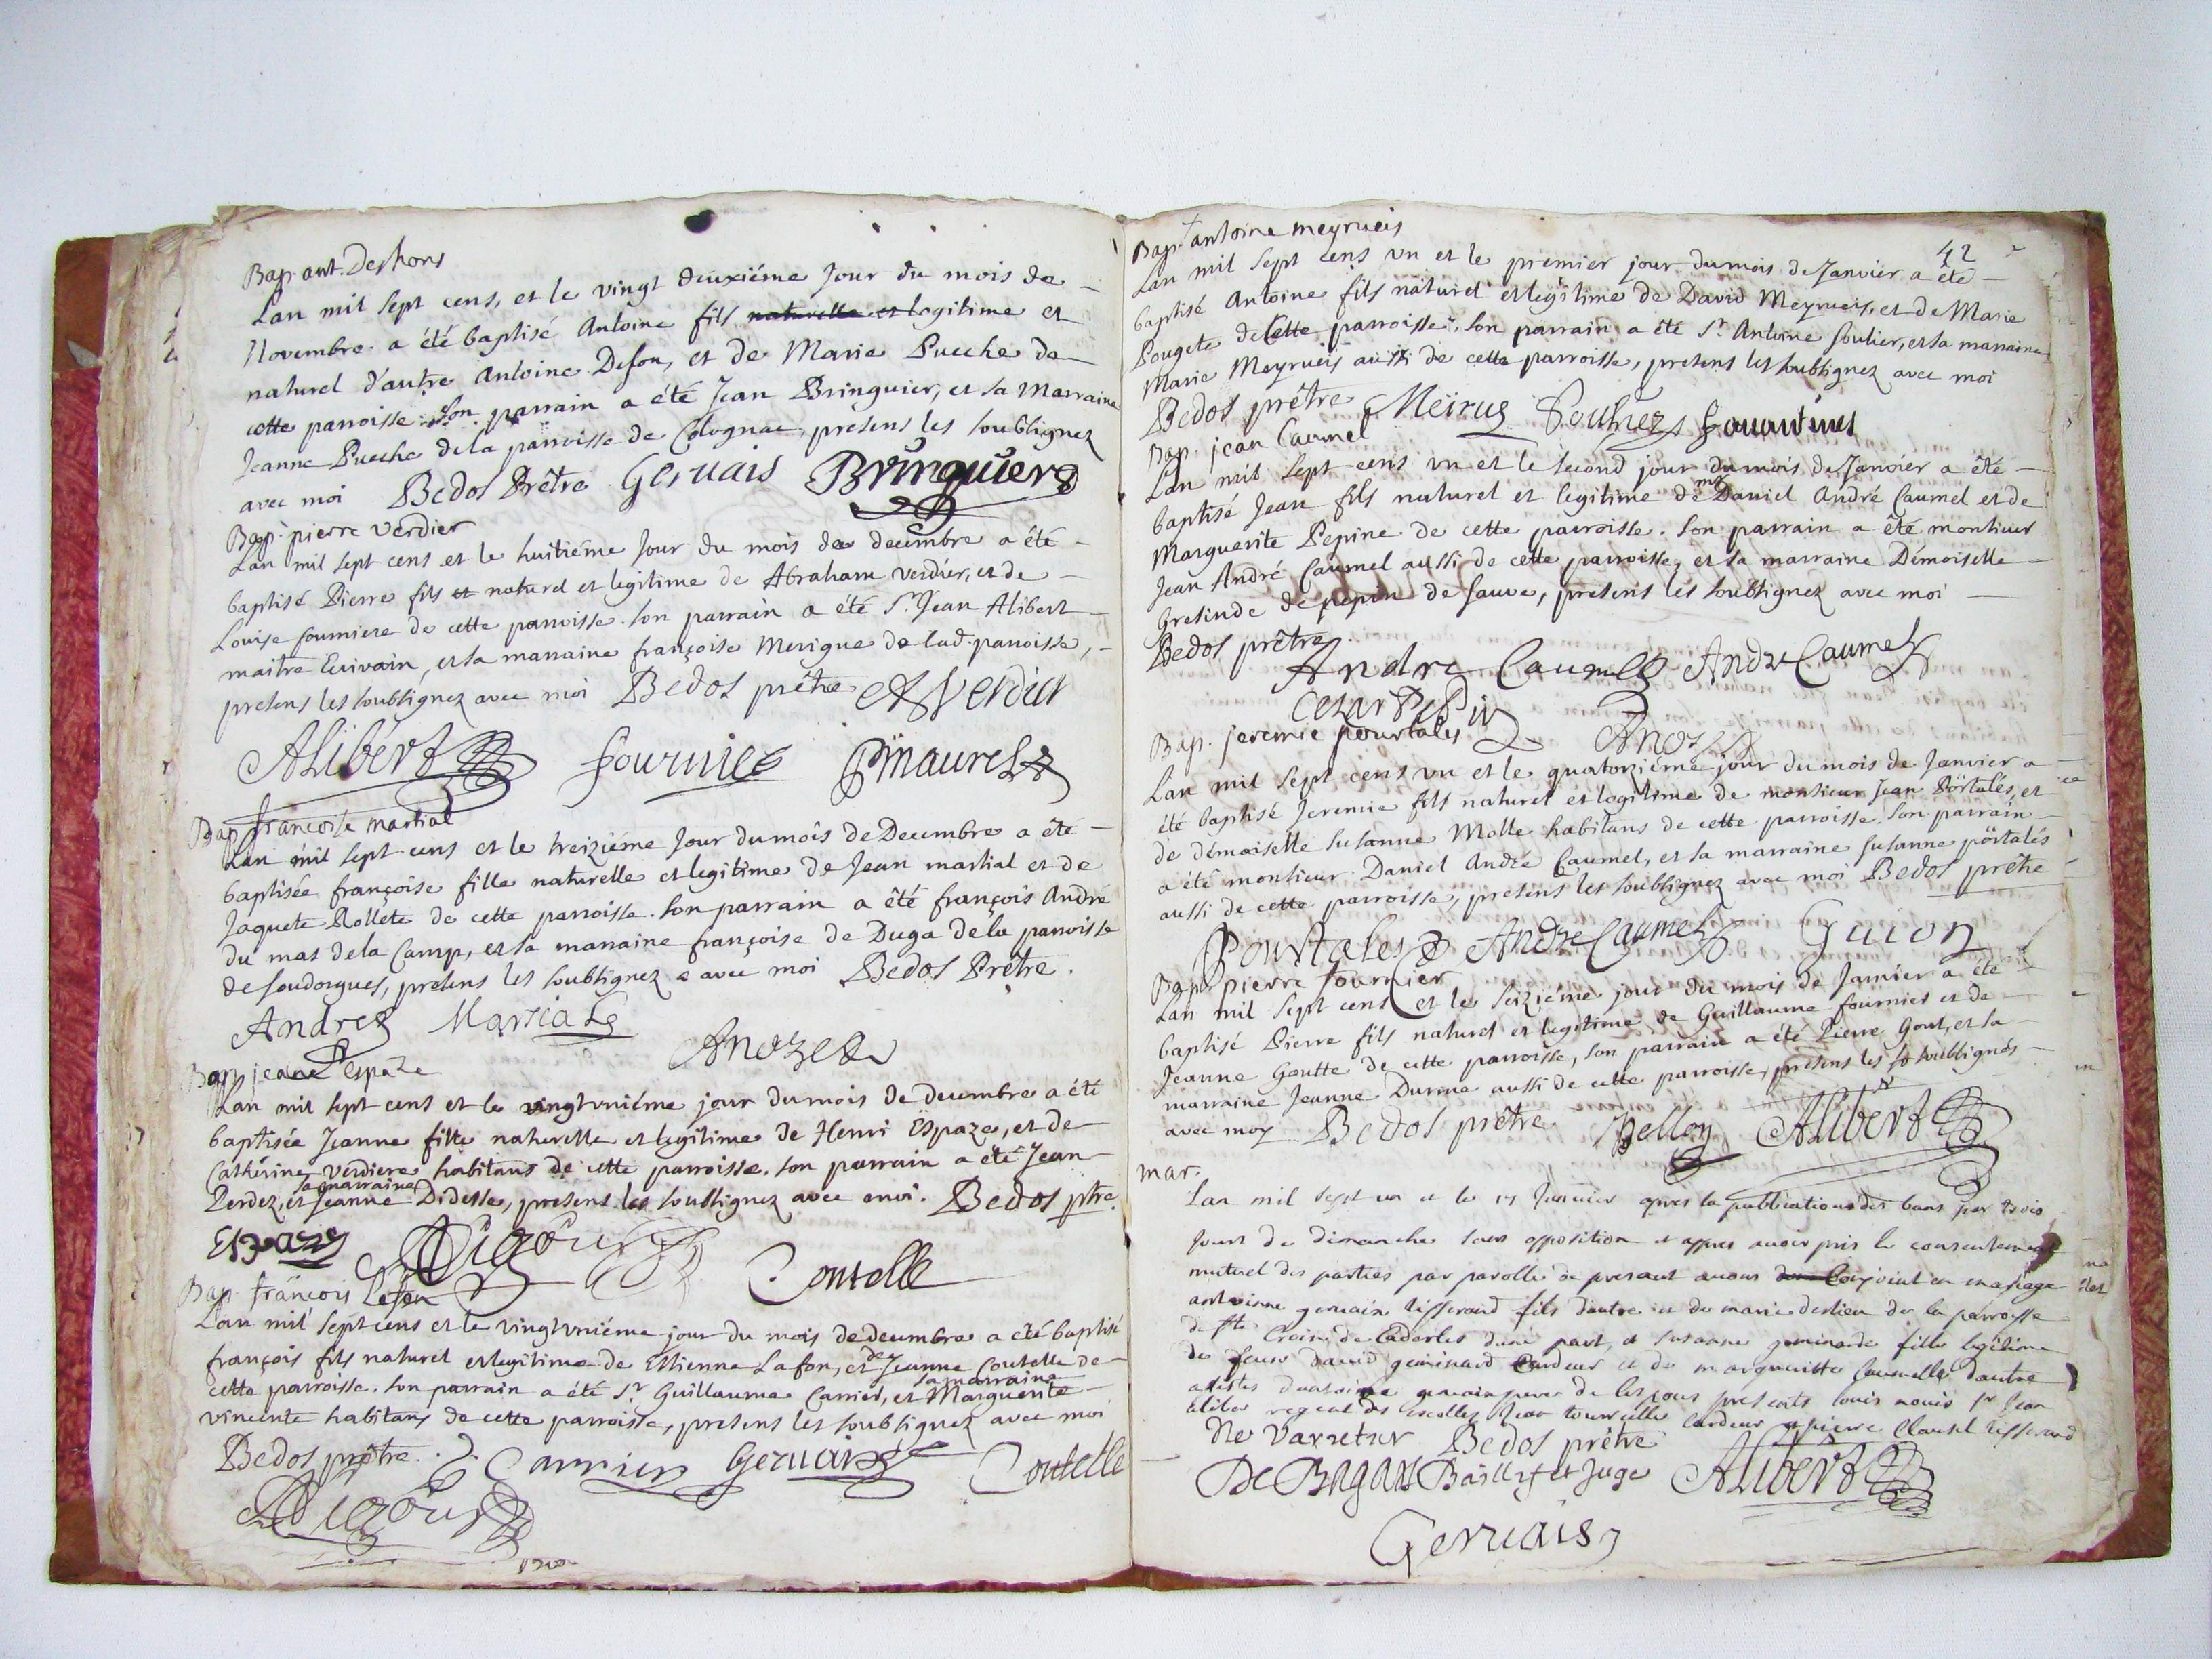 Bap. ant. Deshons
Lan mil sept cens, et le vingt deuxiéme Jour du mois de
Novembre a été baptisé Antoine fils naturelle et legitime et
naturel d'autre Antoine Desou, et de Marie Pueche de
cette parroisse. Son parrain a été Jean Bringuier, et sa Marraine
Jeanne Pueche de la parroisse de Colognac, presens les soubsignez
avec moi Bedos Prêtre Gervais Bringuier
Bap. pierre verdier
Lan mil sept cens et le huitiéme Jour du mois de decembre a été
baptisé Pierre fils et naturel et legitime de Abraham verdier, et de
Louise fourniere de cette parroisse. son parrain a été Sr. Jean Alibert
maitre Ecrivain, et sa marraine françoise Merigue de lad. parroisse,
presens les soubsignez avec moi Bedos prêtre A Verdier
Alibert fournier Pmaurel
Bap. francoise martial
Lan mil sept cens et le treiziéme Jour du mois de Decembre a été
baptisée françoise fille naturelle et legitime de Jean martial et de
Jaquete Rollete de cette parroisse. son parrain a été françois André
du mas dela Camp, et sa marraine françoise de Duga dela parroisse
de soudorgues, presens les soubsignez avec moi Bedos Prêtre.
Andre Martial
Andre
Bap. jeane Espaze
Lan mil sept cens et le vingtvniéme jour du mois de decembre a été
baptisée Jeanne fille naturelle et legitime de Henri Espaze, et de
Catherine verdiere habitans de cette parroisse. son parrain a été Jean
sa marraine
Perdez, et Jeanne Didesse, presens les soubsignez avec moi. Bedos ptre.
Espaze Coutelle
Bap. francois Lafon
Lan mil sept cens et le vingtvniéme jour du mois de decembre a été baptisé
françois fils naturel et legitime de Estienne Lafon, et de Jeanne Coutelle de
sa marraine
cette parroisse. son parrain a été Sr. Guillaume Carrier, et Marguerite
vincente habitans de cette parroisse, presens les soubsignez avec moi
Bedos prêtre. Carrier Gervais Coutelle
42
Bap. antoine meyrueis
Lan mil sept cens vn et le premier jour du mois de Janvier a été
baptisé Antoine fils naturel et legitime de David Meyrueis, et de Marie
Pougete de Cette parroisse. son parrain a été Sr. Antoine soulier, et sa marraine
Marie Meyrueis aussi de cette parroisse, presens les soubsignez avec moi
Bedos prêtre Meirus
Bap. jean Caumel
Lan mil sept cens vn et le second jour du mois de Janvier a été
baptisé Jean fils naturel et legitime de mr Daniel André Caumel et de
Marguerite Pepine de cette parroisse. son parrain a été monsieur
Jean André Caumel aussi de cette parroisse, et sa marraine Démoiselle
Gresinde de pepin de sauve, presens les soubsignez avec moi
Bedos prêtre.
Andre Caumel Andre Caumel
Cezar Pepin
Bap. jeremie pourtales Andre
Lan mil sept cens vn et le quatorziéme jour du mois de Janvier a
été baptisé Jeremie fils naturel et legitime de monsieur Jean Pörtalés, et
de démoiselle Susanne Molle habitans de cette parroisse. son parrain
a été monsieur Daniel André Caumel, et sa marraine susanne pörtalés
aussi de cette parroisse, presens les soubsignez avec moi Bedos prêtre
Pourtales Andre Caumel Guion
Bap. pierre fournier
Lan mil sept cens et le seiziéme jour du mois de Janvier a été
baptisé Pierre fils naturel et legitime de Guillaume fournier et de
Jeanne Goutte de cette parroisse, son parrain a été Pierre Gout, et sa
marraine Jeanne Durane aussi de cette parroisse, presens les soubsignés
avec moy Bedos prêtre Alibert
mar.
Lan mil sept vn et le 17 Janvier apres la publication des bans par trois
jours de dimanche sans opposition et appres avoir pris le consentement
mutuel des parties par parolles de presant avons Conjoint en mariage
antoinne gervaix tisserand fils dautre et de marie deslieu de la parroisse
de ste Croix de Caderles dune part, et susanne geminarde fille legitime
de feux david geminard Cardeur et de margueritte Caumelle dautre
assistes dantoine gervaix pere de lespoux presents louis nouis sr Jean
aliber regent des escolles Jean tourelle cardeur et pierre Clausel tisserand
Bedos prêtre
De Bagars Baillif et Juge Alibert
Gervais